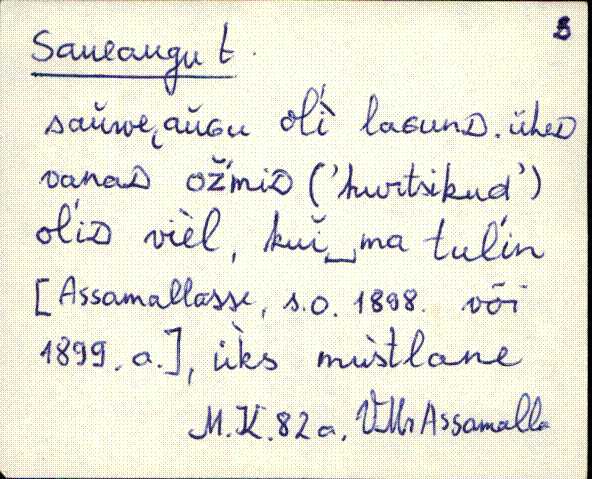 Saueaugu t. 3
saŭweˬaŭɢu oĺì laɢunᴅ. üheᴅ
vanaᴅ ož́miᴅ ('hurtsikud')
oĺiᴅ vièl, kuĭ‿ma tuĺin
[Assamallasse, s.o. 1898. või
1899. a.], üks mùstlane
M.K. 82 a. VMr Assamalla